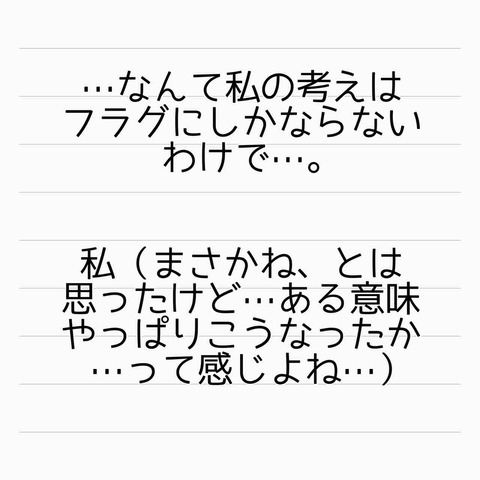 …なんて私の考えは
フラグにしかならない
わけで…。
私（まさかね、とは
思ったけど…ある意味
やっぱりこうなったか
…って感じよね…）